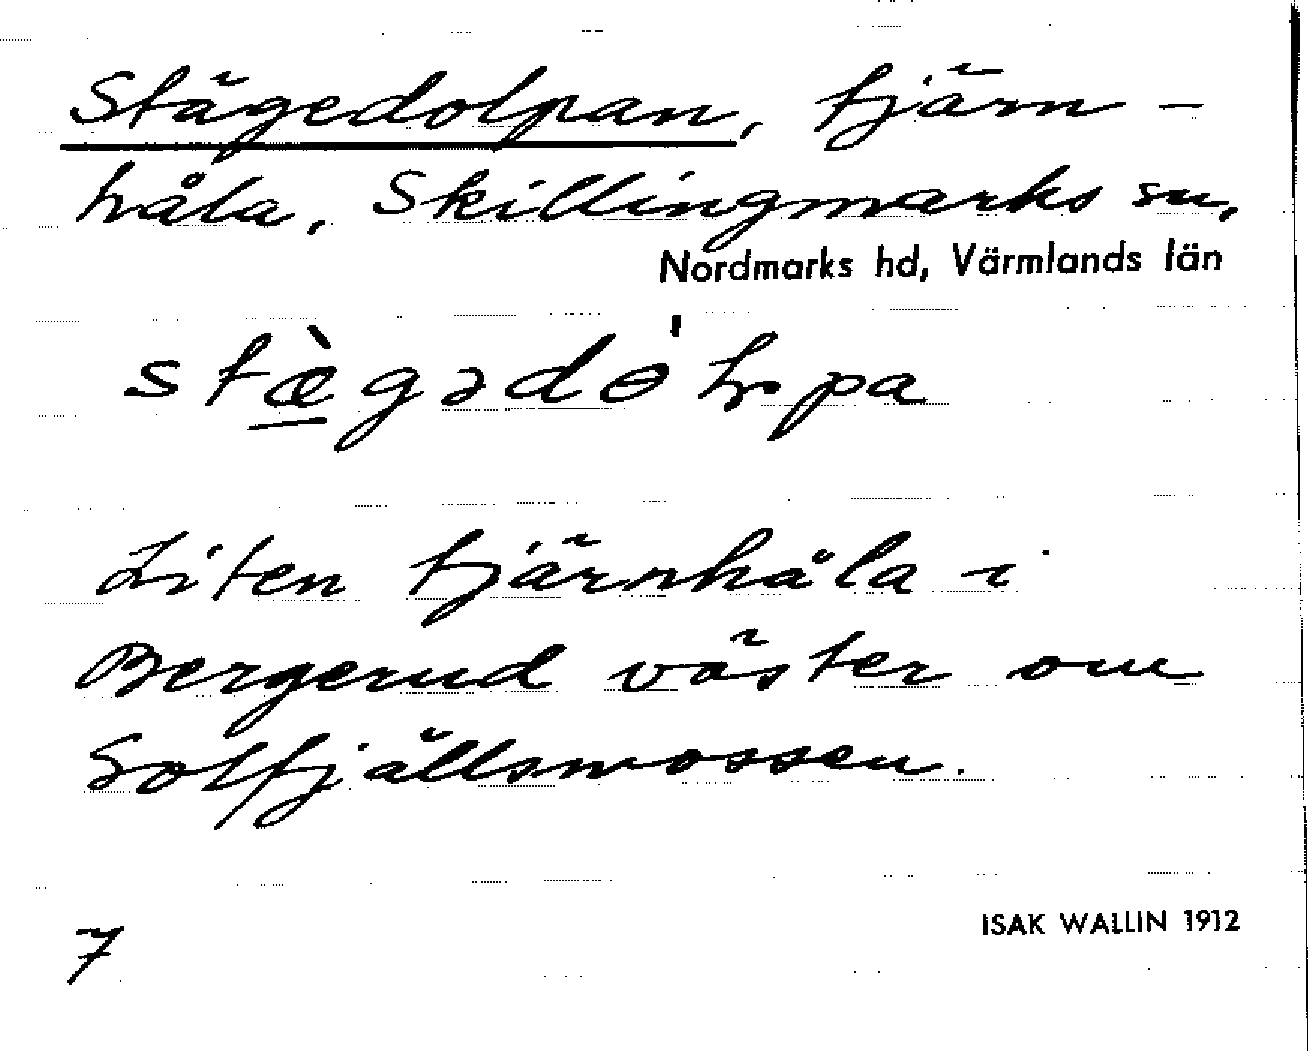 Stägedolpan, tjärn-
håla, Skillingmarks sn,
Nordmarks hd, Värmlands län
Liten tjärnhåla i
Bergerud väster om
Solfjällsmossen.
7
ISAK WALLIN 1912